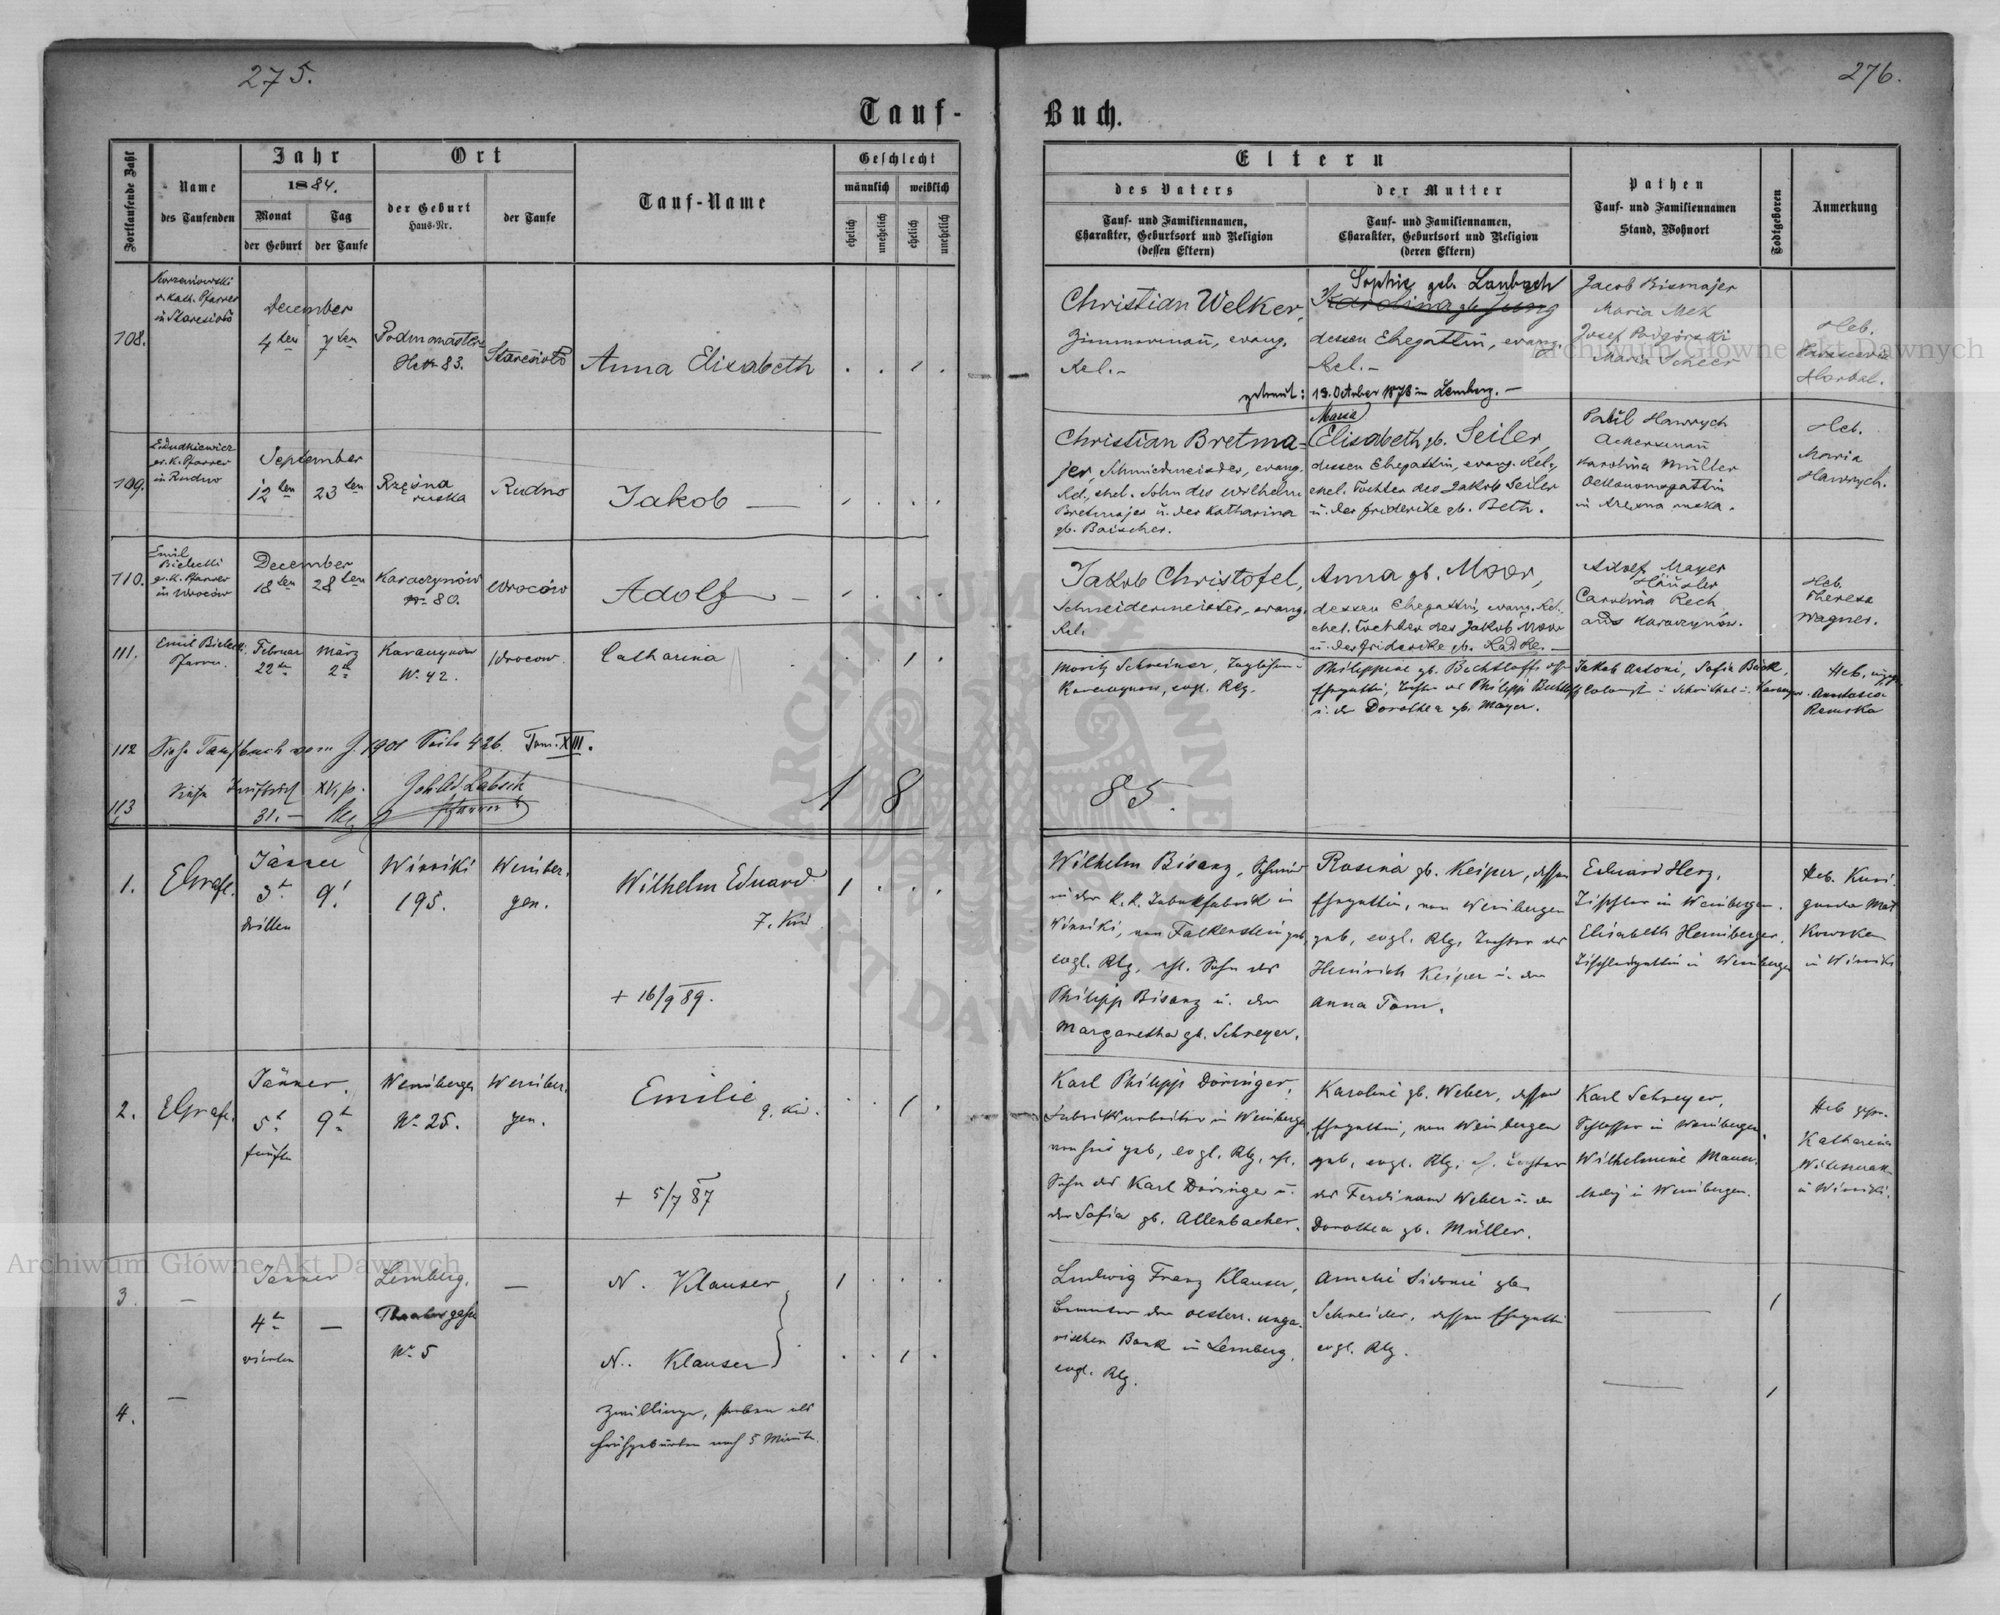 275.
276.
Tauf-
Buch.
Fortlaufende Zahl
Name
des Taufenden
Jahr
1884.
Monat
der Geburt
Tag
der Taufe
Ort
der Geburt
Haus-Nr.
der Taufe
Tauf-Name
Geschlecht
männlich
weiblich
ehelich
unehelich
ehelich
unehelich
Eltern
des Vaters
Tauf- und Familiennamen,
Charakter, Geburtsort und Religion
(dessen Eltern)
der Mutter
Tauf- und Familiennamen,
Charakter, Geburtsort und Religion
(deren Eltern)
Pathen
Tauf- und Familiennamen
Stand, Wohnort
Todtgeboren
Anmerkung
108.
r. kath. Pfarrer
December
4ten
7ten
83.
Anna Elisabeth
Christian Welker,
Zimmermañ, evang.
Rel.-
Sophie geb. Laubach
Karolina gb. Jung
dessen Ehegattin, evang.
Rel.-
getraut: 13. October 1878 in Lemberg.-
Jacob Bismajer
Maria Mek
Josef Podgórski
Maria Scheer
Heb.
109.
gr. k. Pfarrer
in Rudno
September
12ten
23ten
Rzęsna
ruska
Rudno
Jakob
Christian Bretma=
jer, Schmiedmeister, evang.
Rel., ehel. Sohn des Wilhelm
Bretmajer u. der Katharina
gb. Boischer.
Maria
Elisabeth gb. Seiler,
dessen Ehegattin, evang. Rel.,
ehel. Tochter des Jakob Seiler
u. der Friderike gb. Beth.
Paul Hawrych
Ackersmañ
Karolina Müller
Oekonomgattin
Heb.
Maria
Hawrych.
110.
Emil
Bielecki
gr. k. Pfarrer
in Wrocow
December
18ten
28ten
Karaczynów
Nr. 80.
Wroców
Adolf
Jakob Christofel,
Schneidermeister, evang.
Rel.
Anna gb. Moor,
dessen Ehegattin, evang. Rel.,
ehel. Tochter des Jakob Moor
u. der Friderike gb. Radke.
Adolf Mayer
Häusler
Carolina Rech
aus Karaczynow.
Heb.
Theresa
Wagner.
111.
Emil Bielecki
Pfarrer.
Februar
22te
März
2te
Karaczynow
Nr. 42.
Wrocow.
Catharina
Moritz Schreiner, Taglöhner
Karaczynow, evgl. Rlg.
Philippine gb. Bechtloff, dessen
Ehegattin, Tochter des Philipp Bechtloff
u. der Dorothea gb. Mayer.
Jakob Antoni, Sofia Bäck,
Heb.
Anastasia
Romska
112
Siehe Taufbuch vom J. 1901 Seite 426. Tom. XIII.
113
Siehe
XVI, p.
31.-
Pfarrer
1 8
85.
1.
EGrafl.
Jänner
3t
dritten
9t
Winniki
195.
Weinber.
gen.
Wilhelm Eduard
7. Kind
+ 16/9 89.
Wilhelm Bisanz, Schmied
in der K. K. Tabakfabrik in
Winniki, von Falkenstein geb,
evgl. Rlg, ehl. Sohn des
Philipp Bisanz u. der
Margaretha gb. Schreyer.
Rosina gb. Keiper, dessen
Ehegattin, von Weinbergen
geb, evgl. Rlg, Tochter des
Heinrich Keiper u. der
Anna Tom.
Eduard Herz,
Tischler in Weinbergen.
Elisabeth Heuiberger,
Tischlergattin in Weinbergen
Heb. Kuni.
gunda Mat
kowska
in Winniki
2.
EGrafl.
Jänner.
5t
fünften
9t
Weinbergen
Nr. 25.
Weinber.
gen.
Emilie
9. Kind.
+ 5/7 87
Karl Philipp Döringer,
Fabrikarbeiter in Weinbergen
von hier geb, evgl. Rlg, ehl.
Sohn des Karl Döringer u.
der Sofia gb. Allenbacher.
Karoline gb. Weber, dessen
Ehegattin, von Weinbergen
geb, evgl. Rlg, ehl. Tochter
des Ferdinand Weber u. der
Dorothea gb. Müller.
Karl Schreyer,
Schlosser in Weinbergen.
Wilhelmine Mauer,
ledig in Weinbergen.
Heb. gepr.
Katharina
in Winniki.
3.
Jänner
4t
vierten
Lemberg,
Theatergasse
Nr. 5
N. Klauser
N. Klauser
Zwillinge, starben als
Frühgeburten nach 5 Minuten.
Ludwig Franz Klauser,
Beamter der oesterr. unga-
rischen Bank in Lemberg,
evgl. Rlg.
Amalie Sidonie gb
Schneider, dessen Ehegattin
evgl. Rlg.
4.
Archiwum Główne Akt Dawnych
Archiwum Główne Akt Dawnych
ARCHIWUM GŁÓWNE AKT DAWNYCH